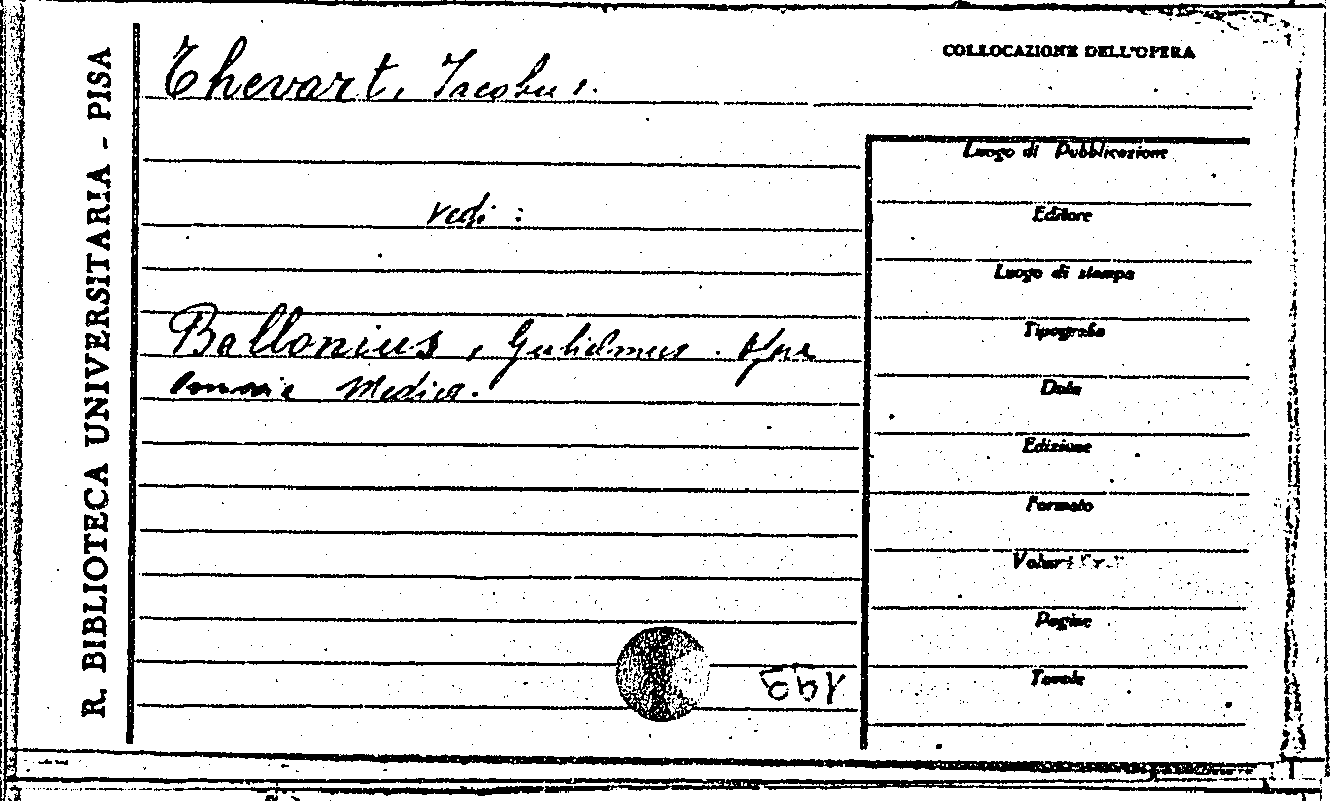 R. BIBLIOTECA UNIVERSITARIA - PISA
COLLOCAZIONE DELL'OPERA
Thevart, Jacobus.
vedi :
Ballonius, Gulielmus. Opera
omnia Medica.
Luogo di Pubblicazione
Editore
Luogo di stampa
Tipografia
Data
Edizione
Formato
Pagine
Tavole